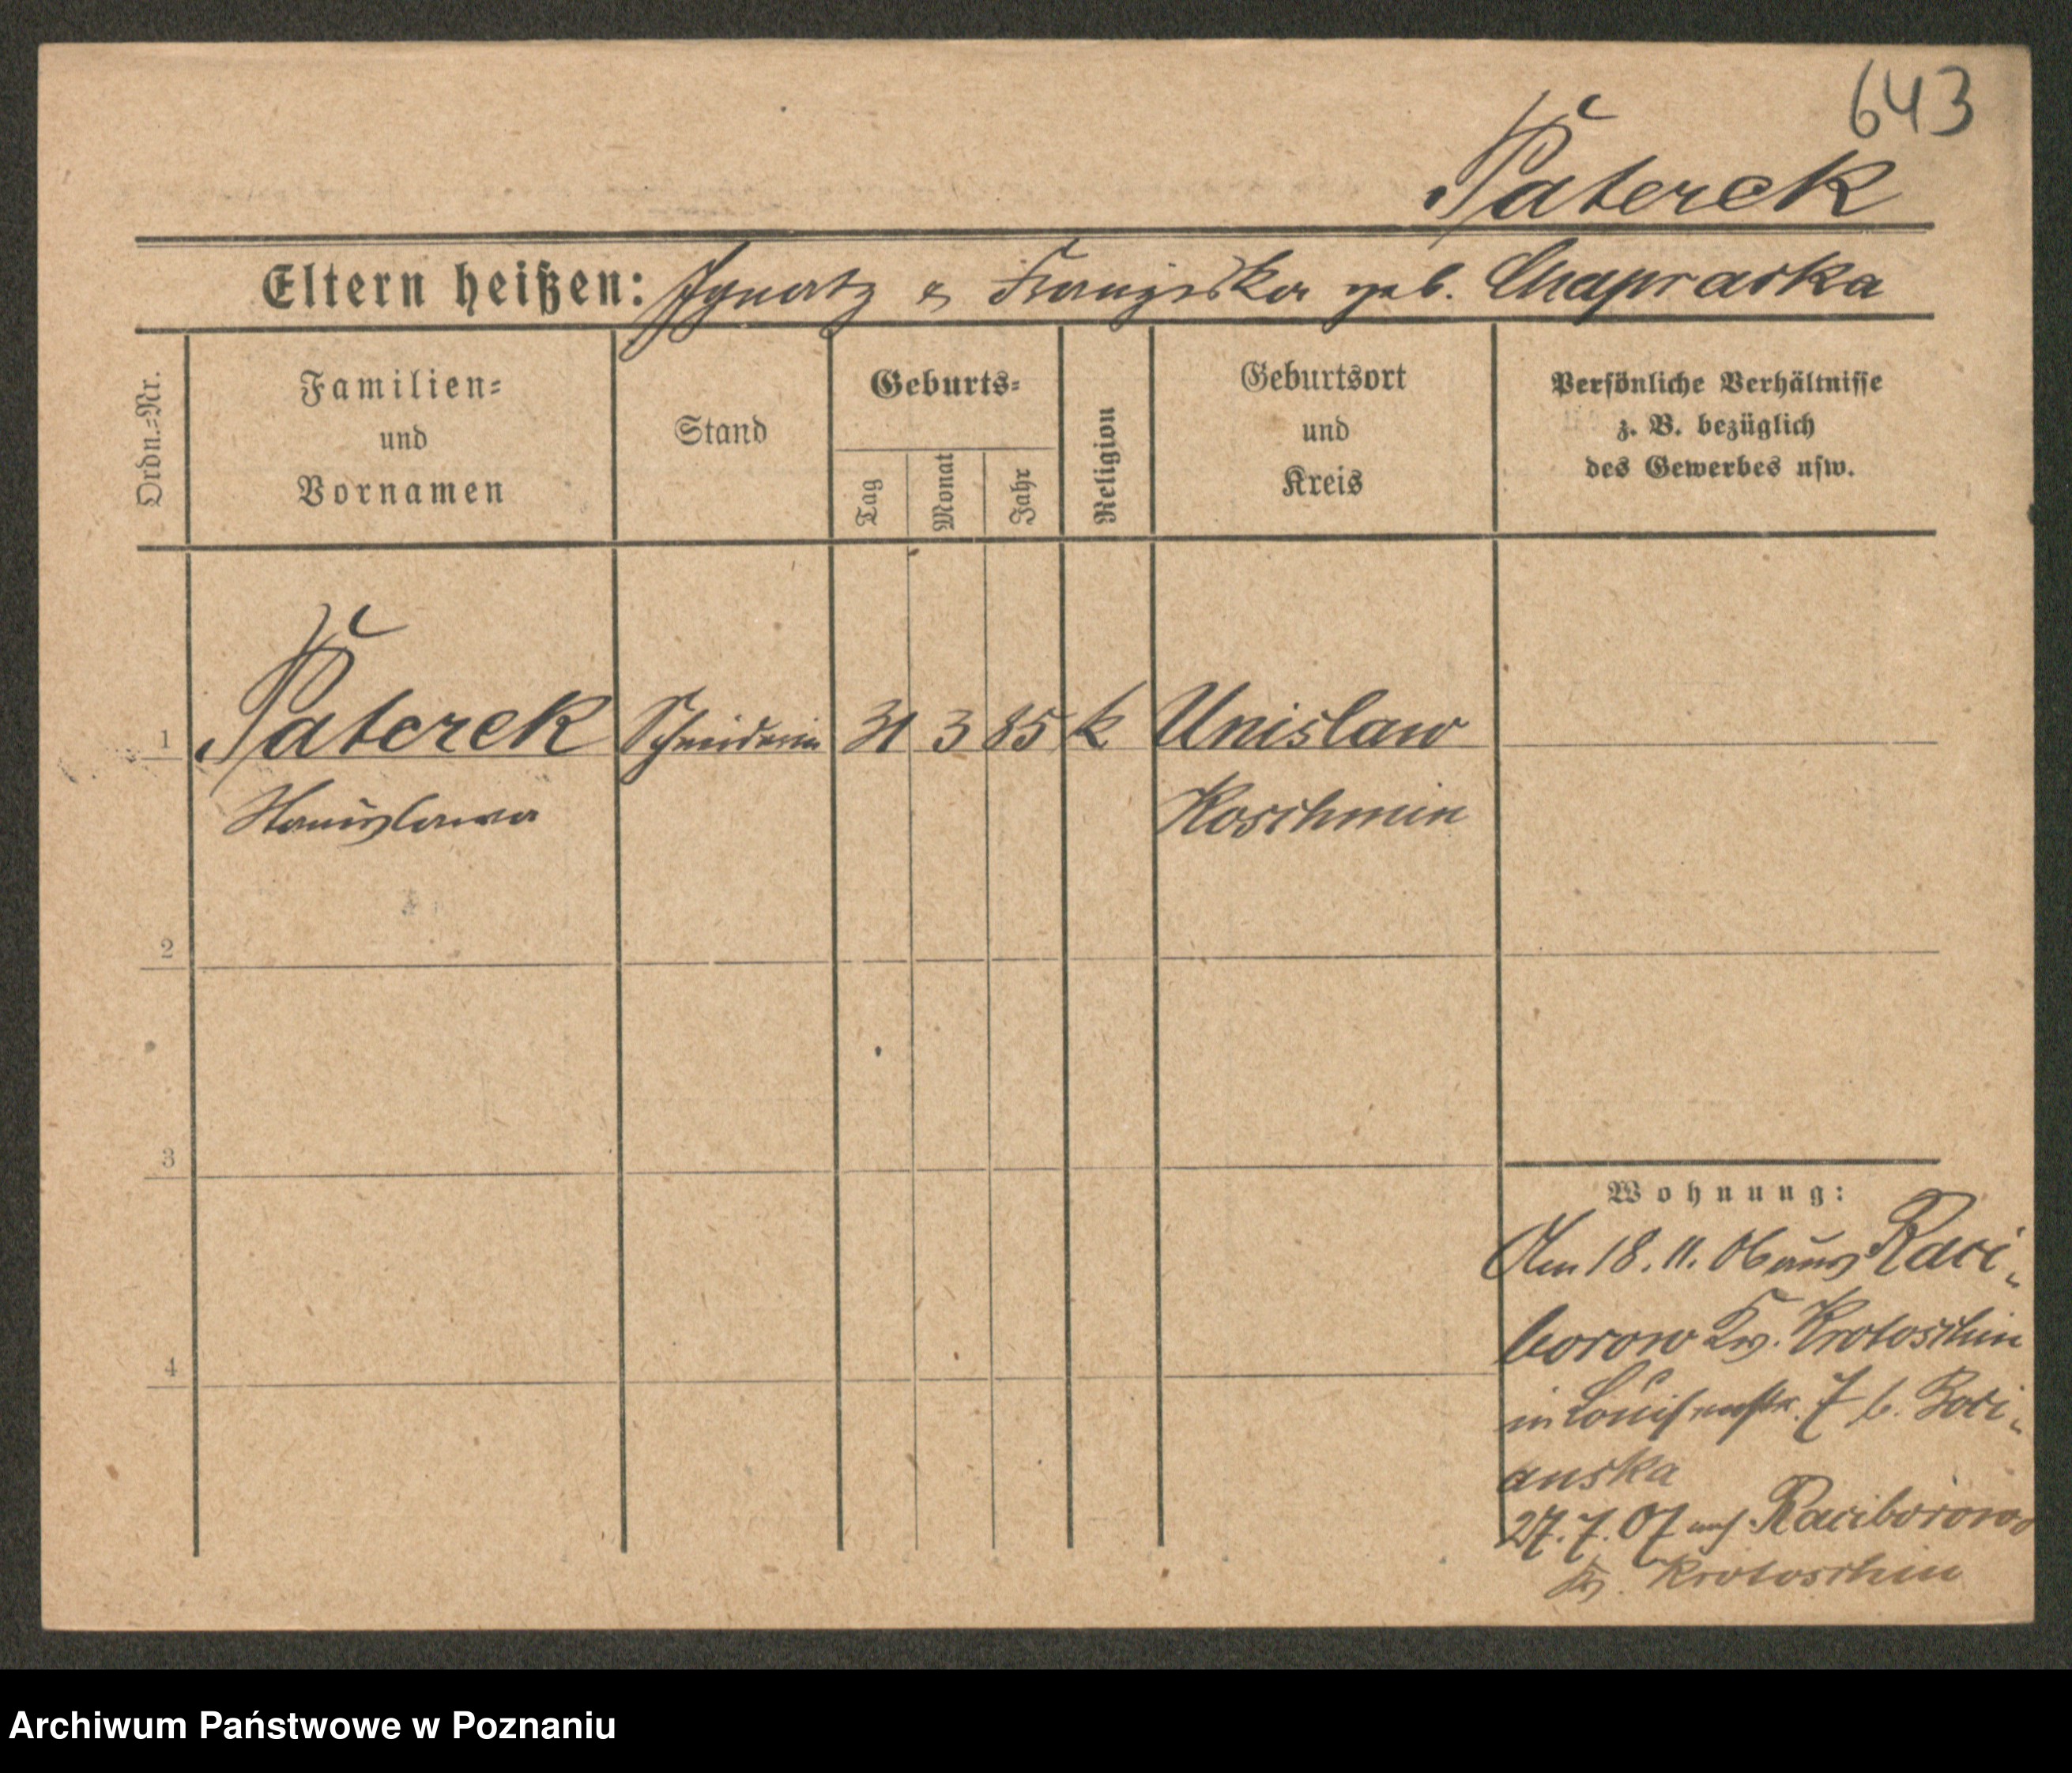 643
Paterek
Eltern heißen: Ignatz & Franziska geb. Chapraska
Ordn.-Nr.
Familien-
und
Vornamen
Stand
Geburts-
Tag
Monat
Jahr
Religion
Geburtsort
und
Kreis
Persönliche Verhältnisse
z. B. bezüglich
des Gewerbes usw.
1 Paterek Schneiderin 31 3 85 k Unislaw
Stanislawa Koschmin
2
3
4
Wohnung:
Am 18.11.06 aus Raci-
borow Krs. Krotoschin
in Louisenstr. 7 b.
anska
27.7.07 nach Raciborowo
Krs. Krotoschin
Archiwum Państwowe w Poznaniu